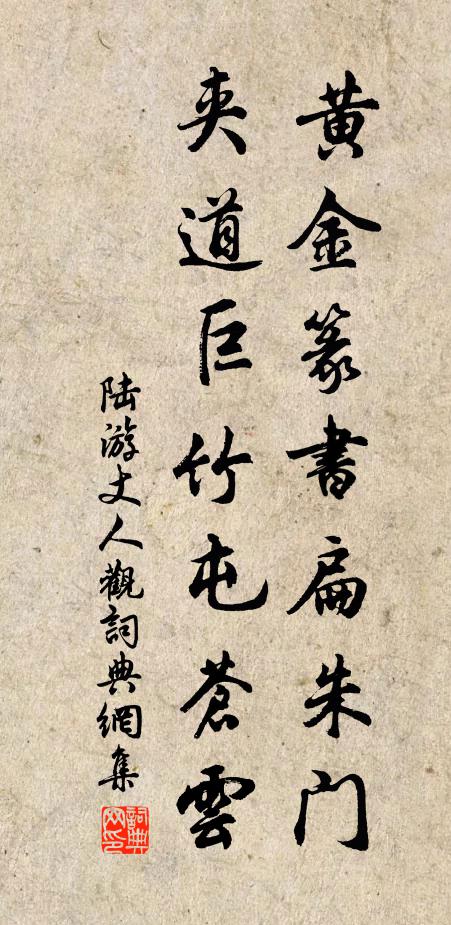 黄金篆書扁朱门
夹道巨竹屯蒼雲
陆游丈人觀詞典網集
詞典网印